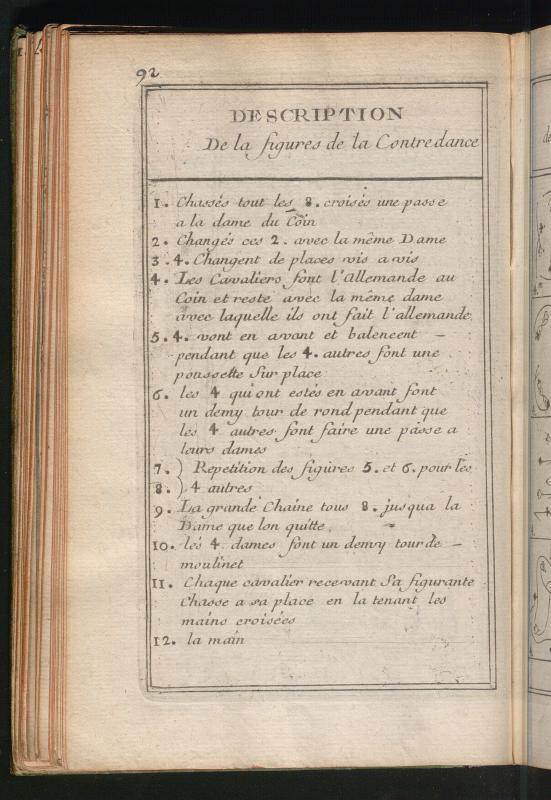 92
DESCRIPTION
De la figures de la Contredance
1. Chassés tout les 8. croisés une passe
a la dame du Coin
2. Changés ces 2. avec la même Dame
3. 4. Changent de places vis a vis
4. Les Cavaliers font l'allemande au
Coin et reste avec la même dame
avec laquelle ils ont fait l'allemande
5. 4. vont en avant et balencent —
pendant que les 4. autres font une
poussette sur place
6. les 4 qui ont estés en avant font
un demy tour de rond pendant que
les 4 autres font faire une passe a
leurs dames
7. } Repetition des figures 5. et 6. pour les
8. } 4 autres
9. La grande Chaine tous 8. jusqua la
Dame que lon quitte
10. lés 4 dames font un demy tour de —
moulinet
11. Chaque cavalier recevant Sa figurante
Chasse a sa place en la tenant les
mains croisées
12. la main